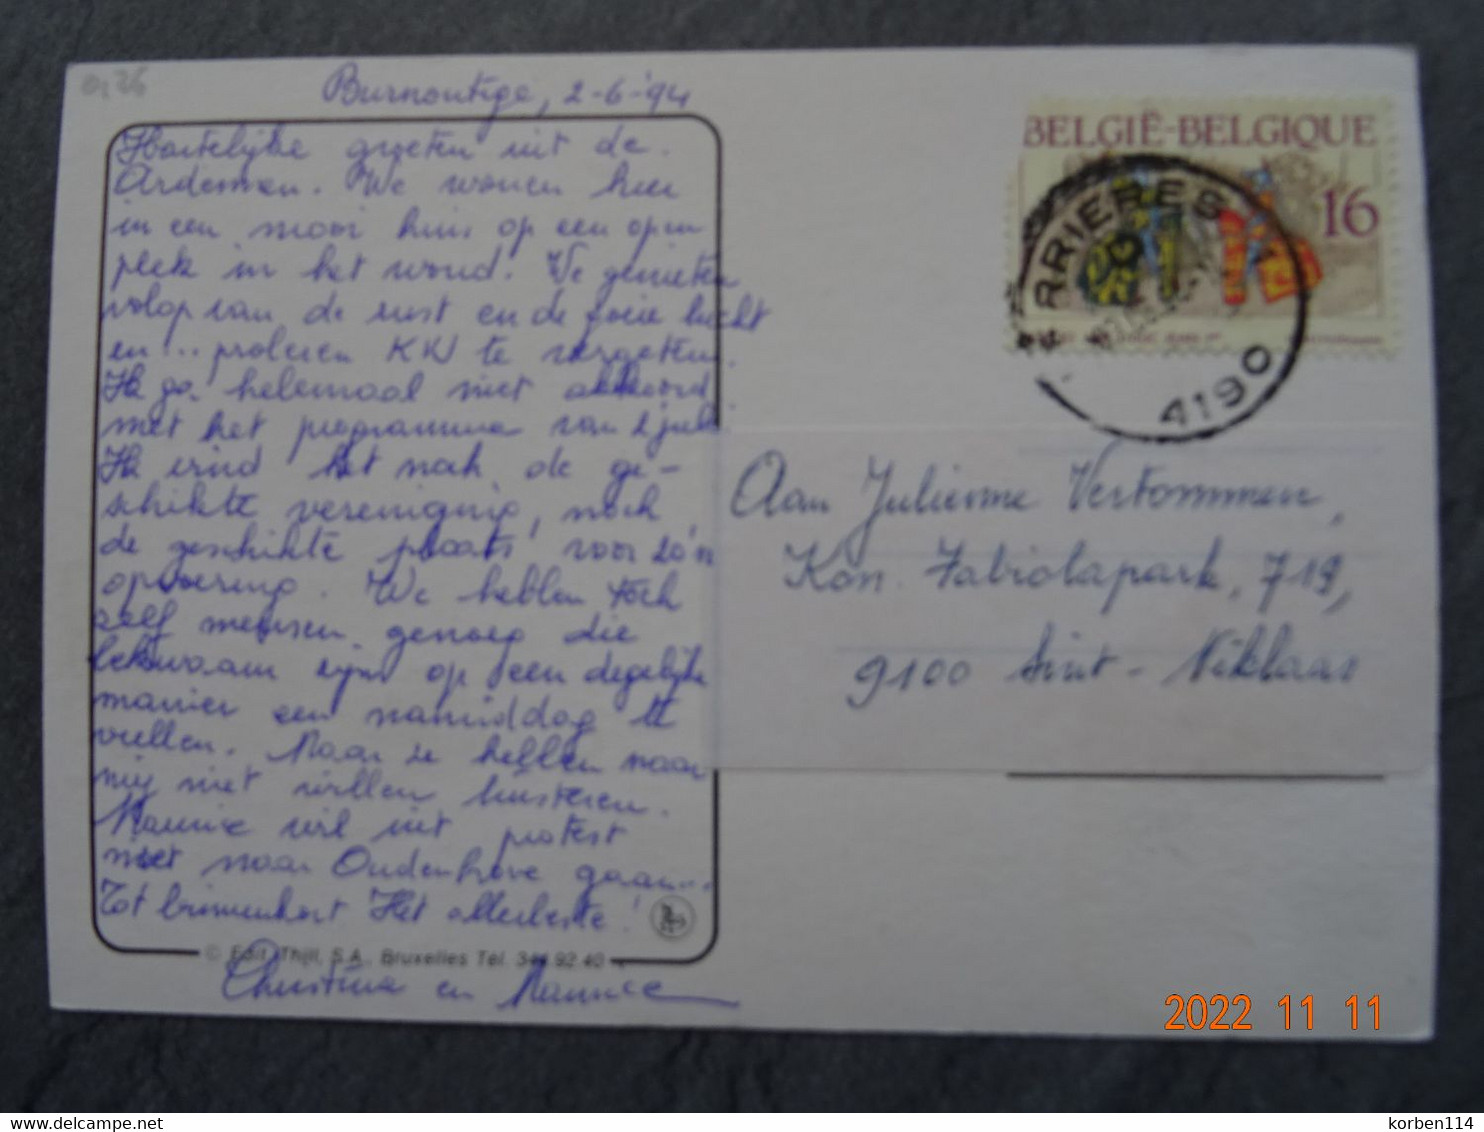 0,26
Burnontige, 2-6-'94
Hartelijke groeten uit de
Ardennen. We wonen hier
in een mooi huis op een open
plek in het woud. We genieten
volop van de rust en de foeie lucht
en ... proberen KKJ te vergeten.
Ik ga helemaal niet akkoord
met het programma van 2 juli.
Ik vind het noch de ge-
schikte vereniging, noch
de geschikte plaats voor zo'n
opvoering. We hebben toch
zelf mensen genoeg die
bekwaam zijn op een degelijke
manier een namiddag te
vullen. Maar ze hebben naar
mij niet willen luisteren.
Maurice wil uit protest
niet naar Oudenhove gaan...
Tot binnenkort Het allerbeste!
© Edit. Thijl, S.A., Bruxelles Tél. 344.92.40
Christina en Maurice
BELGIË-BELGIQUE
16
FERRIERES
4190
Aan Julienne Vertommen,
Kon. Fabiolapark, 719,
9100 Sint-Niklaas
2022 11 11
delcampe.net
korben114